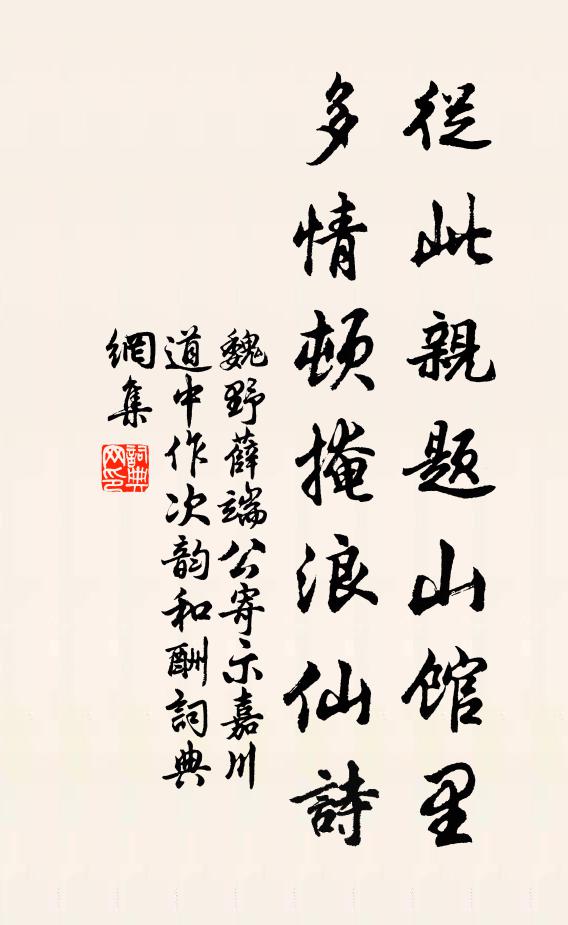 從此親題山館里
多情頓掩浪仙詩
魏野薛端公寄示嘉川
道中作次韵和酬詞典
網集
詞典网印